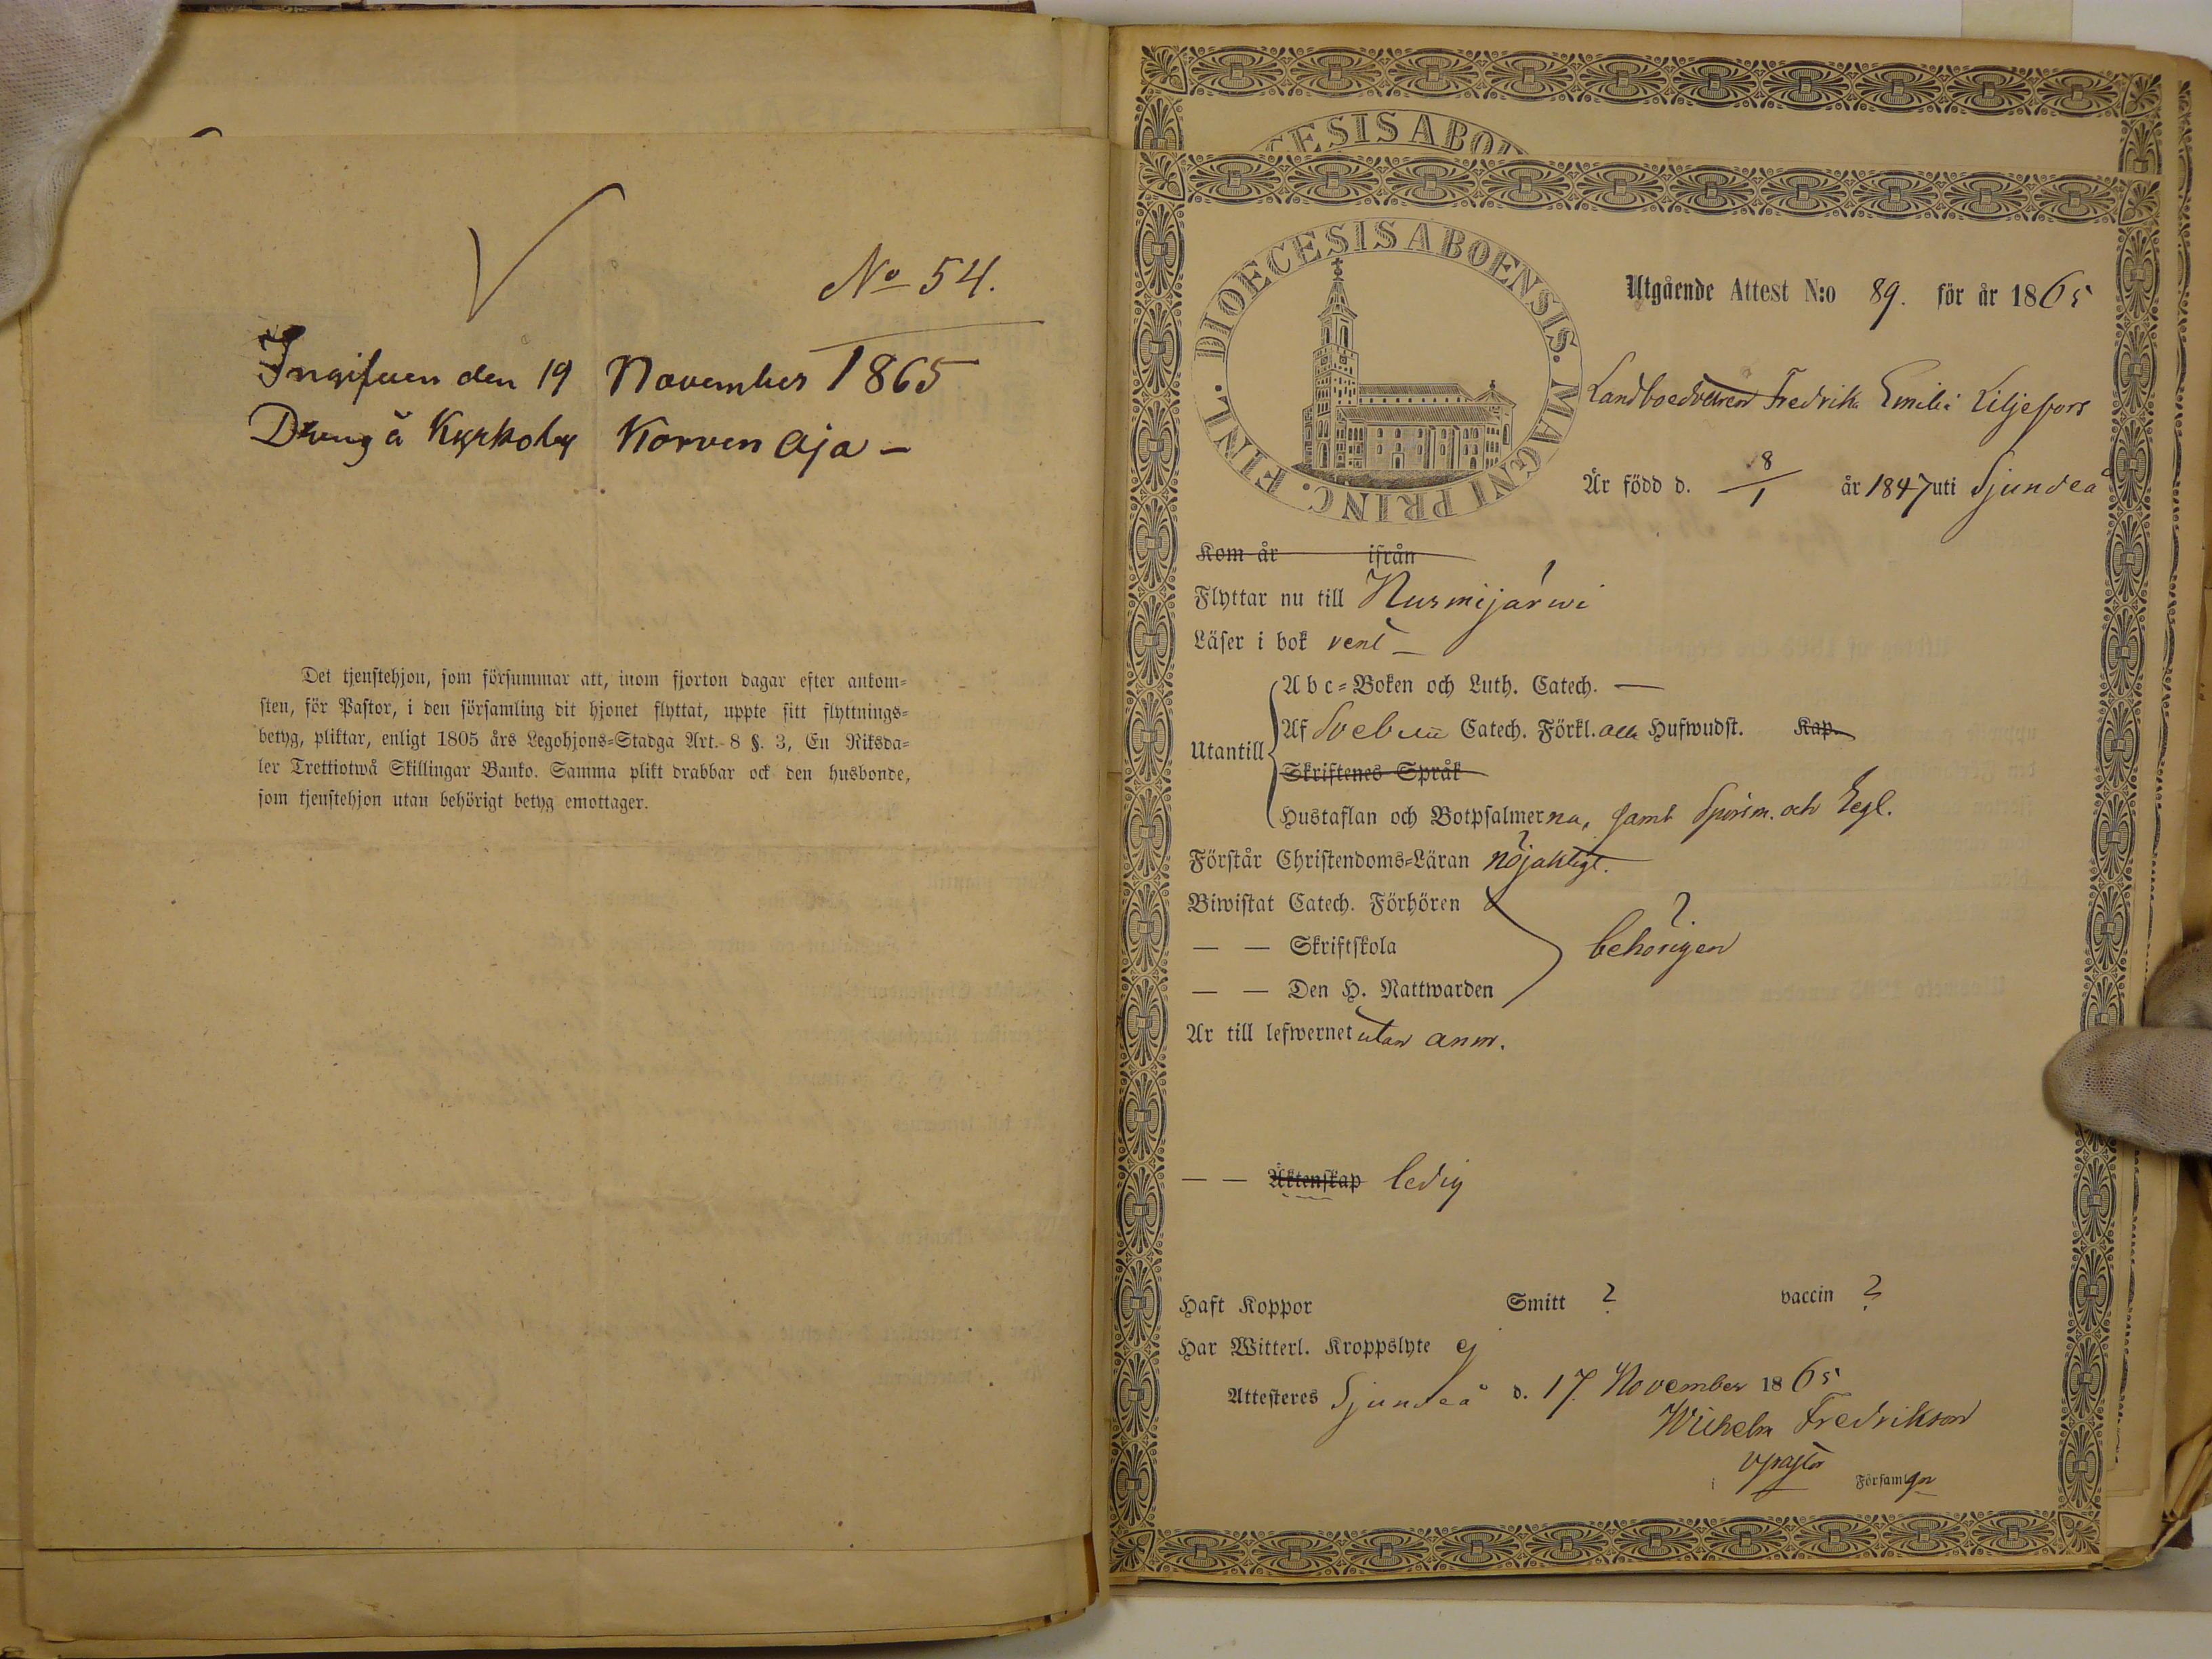 No 54.
Ingifven den 19 November 1865
Dreng å Kyrkoby Korven Oja –
Det tjenstehjon, som försummar att, inom fjorton dagar efter ankom=
sten, för Pastor, i den församling dit hjonet flyttat, uppte sitt flyttnings=
betyg, pliktar, enligt 1805 års Legohjons=Stadga Art. 8 §. 3, En Riksda=
ler Trettiotwå Skillingar Banko. Samma plikt drabbar ock den husbonde,
som tjenstehjon utan behörigt betyg emottager.
DIOECESIS ABOENSIS. MAGNI PRINC. FINL.
Utgående Attest N:o 89. för år 1865
Landboedottren Fredrika Emilia Liljefors
Är född d. 8/1 år 1847 uti Sjundeå
Kom år ifrån
Flyttar nu till Nurmijärwi
Läser i bok rent –
Utantill
A b c=Boken och Luth. Catech. —
Af Svebelii Catech. Förkl. alla Hufwudst. Kap.
Skriftenes Språk
Hustaflan och Botpsalmerna, samt Spörsm. och Regl.
Förstår Christendoms=Läran nöjaktigt.
Biwistat Catech. Förhören
— — Skriftskola behörigen
— — Den H. Nattwarden
Är till lefwernet utan anm.
— — Äktenskap ledig
Haft Koppor Smitt ? vaccin ?
Har Witterl. Kroppslyte ej
Attesteres Sjundeå d. 17. November 1865
Wilhelm Fredrikson
v pastor
i Församlgn